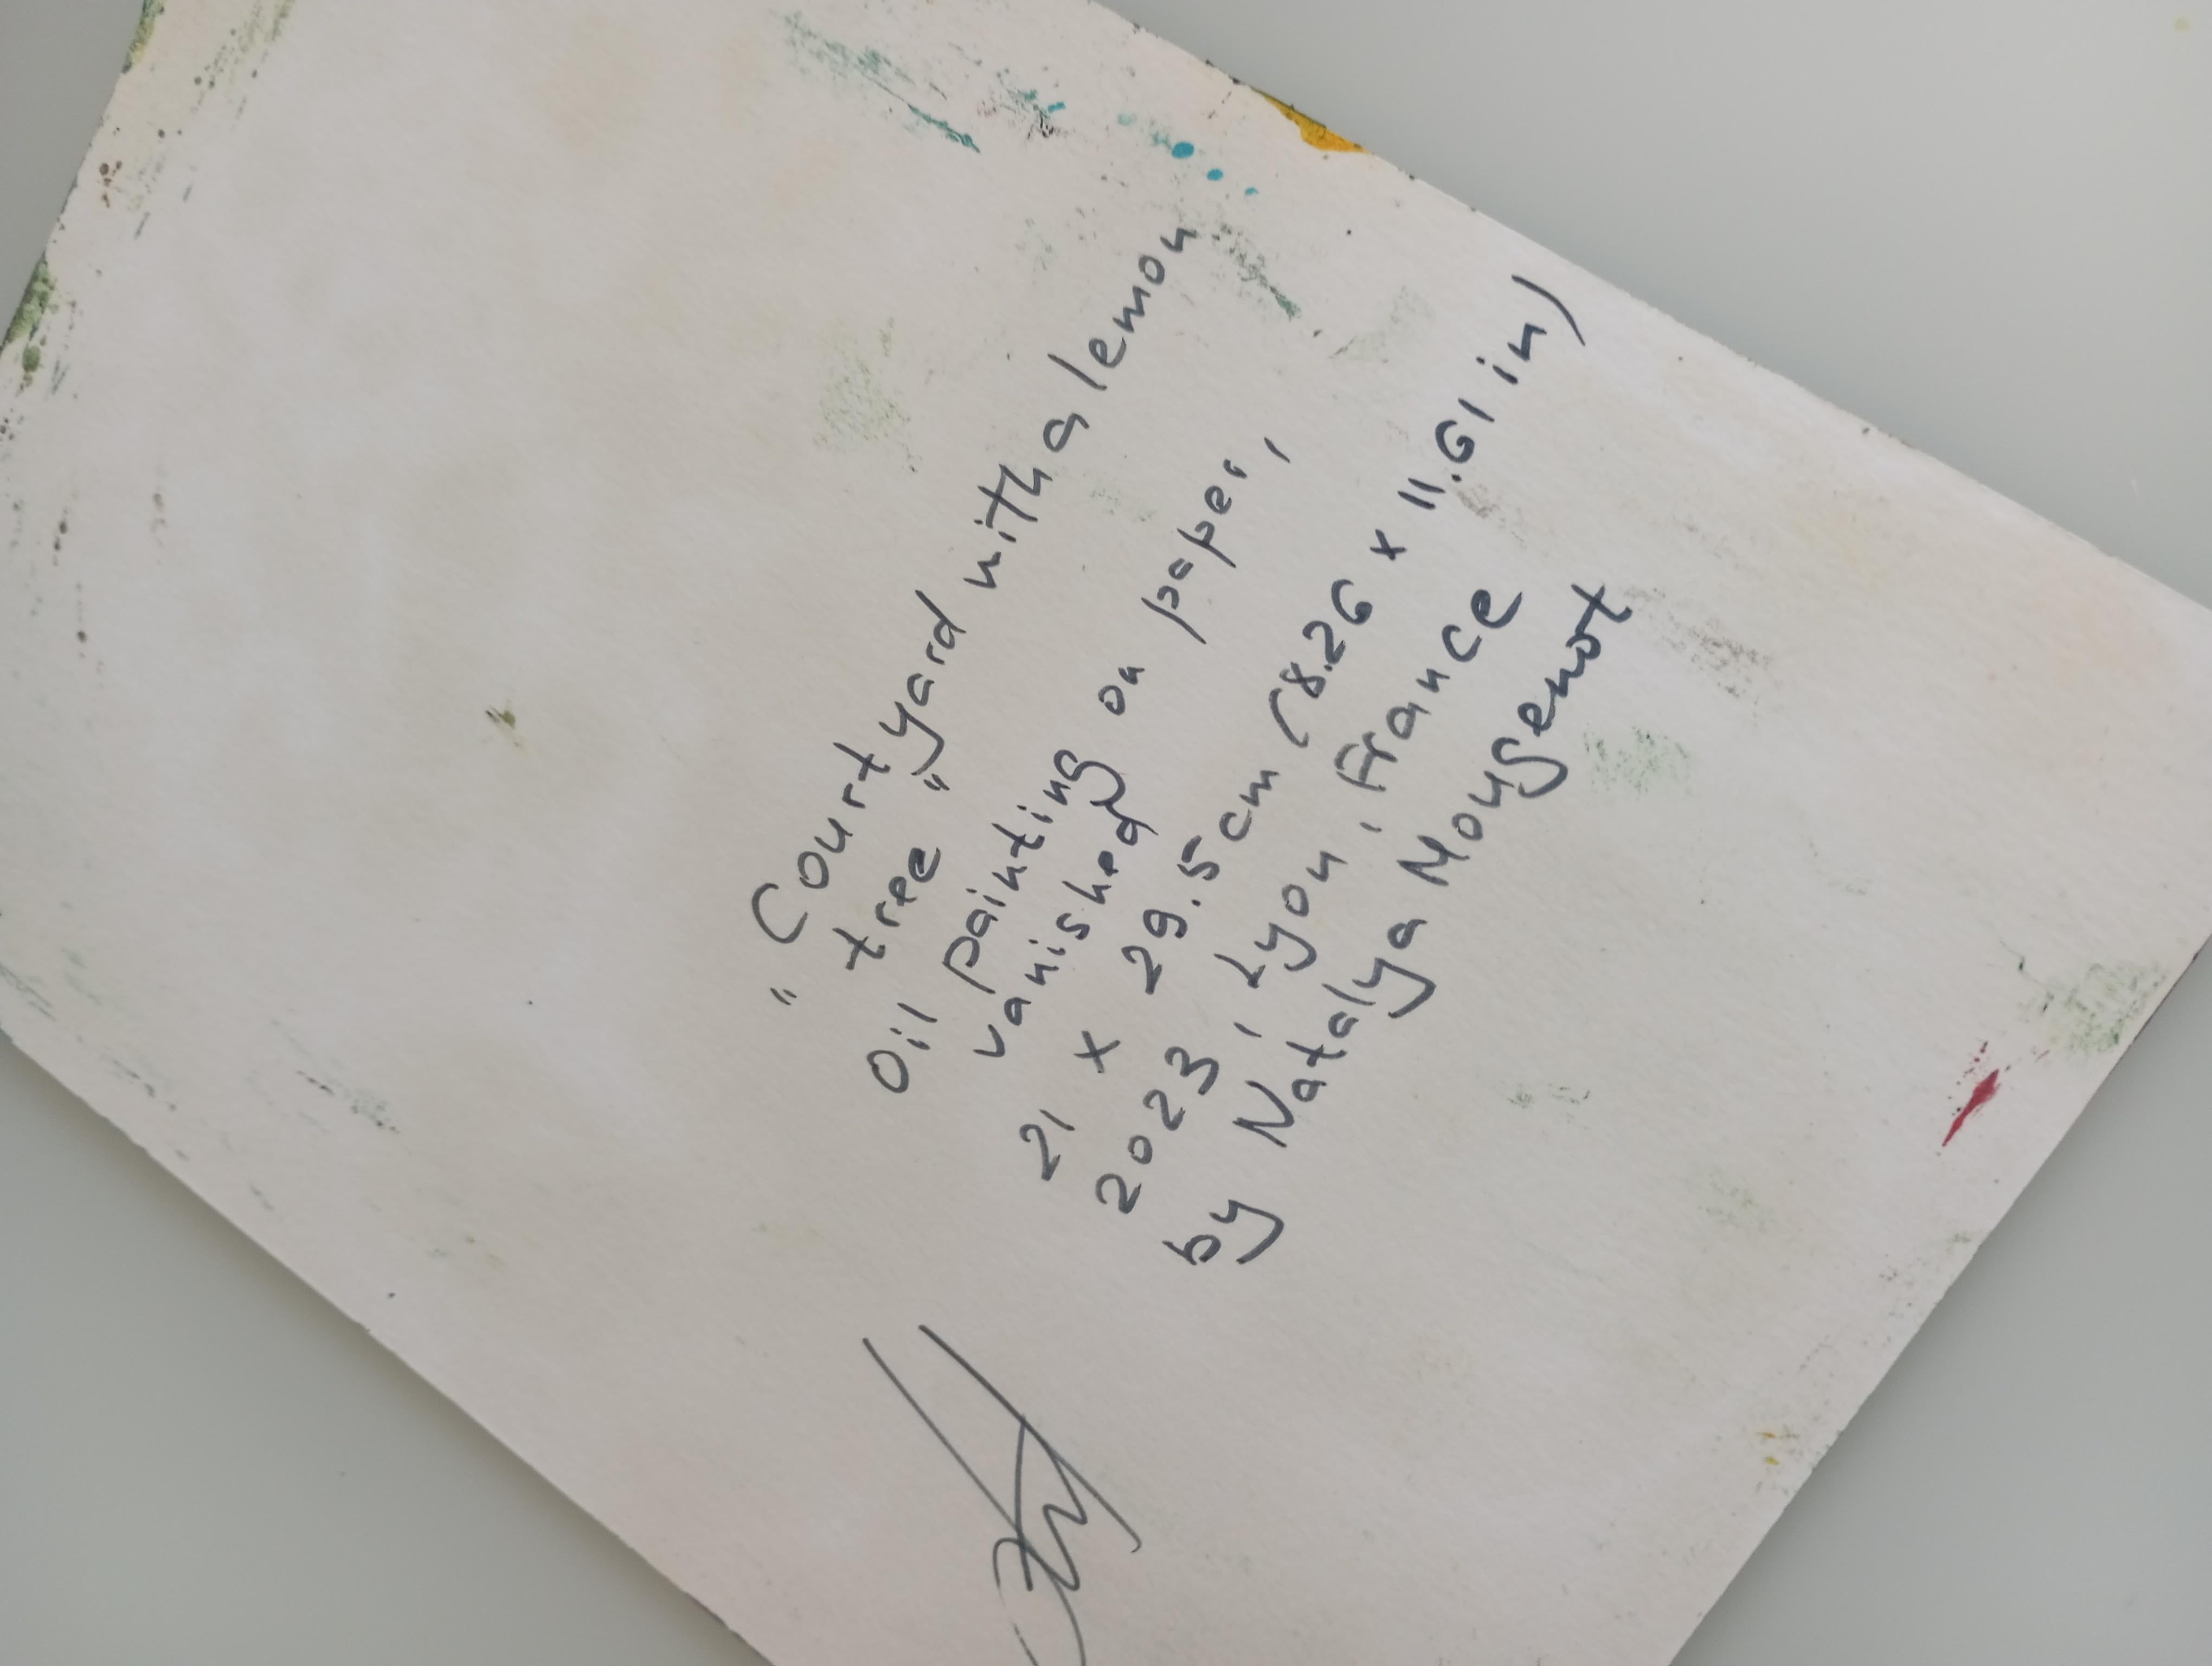 "Courtyard with a lemon
tree"
Oil painting on paper,
vanished
21 x 29.5 cm (8.26 x 11.61 in)
2023, Lyon, France
by Natalya Mougenot